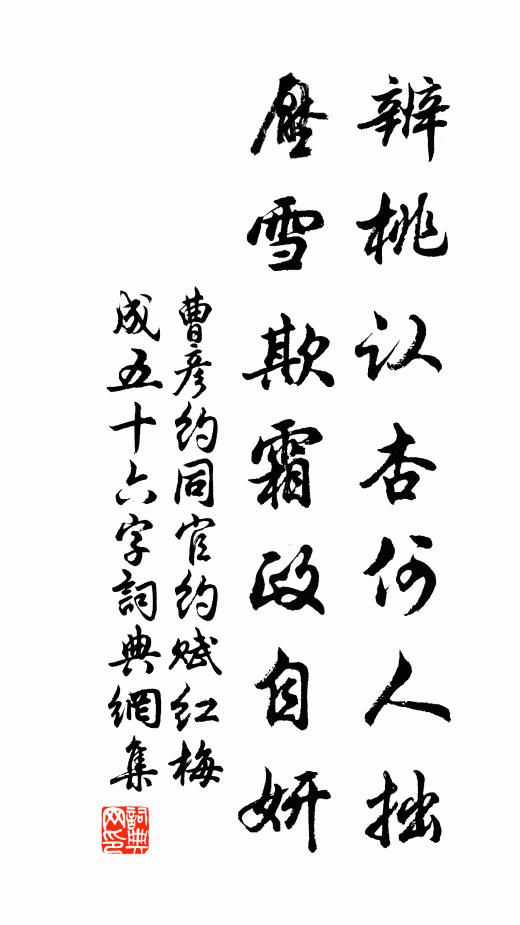 辨桃认杏何人拙
壓雪欺霜政自妍
曹彦約同官約赋红梅
成五十六字詞典網集
詞典网印